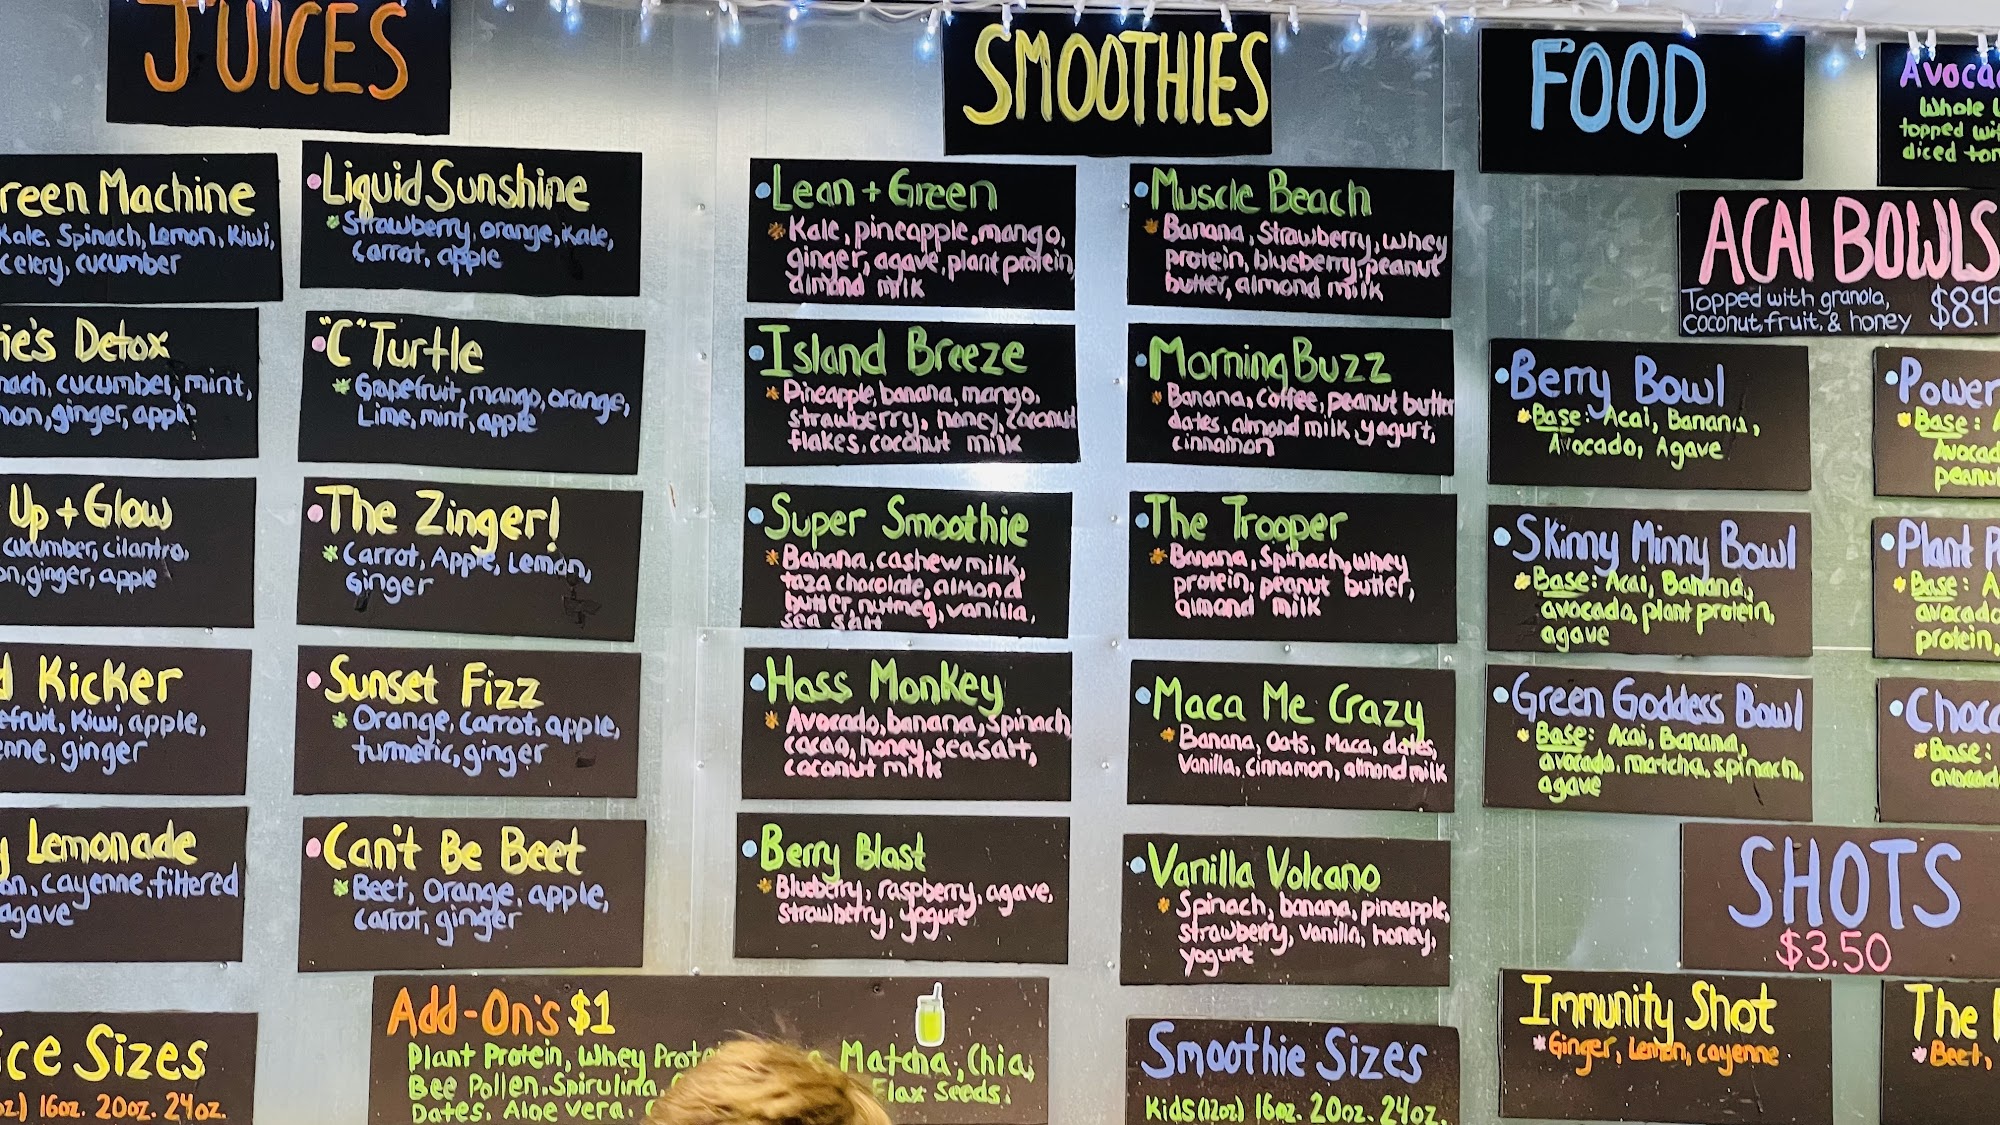 JUICES
Green Machine
Kale, Spinach, Lemon, Kiwi,
celery, cucumber
Detox
cucumber, mint,
ginger, apple
Up + Glow
cucumber, cilantro,
ginger, apple
Kicker
Kiwi, apple,
ginger
Lemonade
cayenne, filtered
agave
Sizes
16oz. 20oz. 24oz.
Liquid Sunshine
Strawberry, orange, Kale,
carrot, apple
"C" Turtle
Grapefruit, mango, orange,
Lime, mint, apple
The Zinger!
Carrot, Apple, Lemon,
Ginger
Sunset Fizz
Orange, carrot, apple,
turmeric, ginger
Can't Be Beet
Beet, Orange, apple,
carrot, ginger
Add-On's $1
Plant Protein, Whey Matcha, Chia,
Bee Pollen, Spirulina, Flax Seeds,
Dates, Aloe vera,
SMOOTHIES
Lean + Green
Kale, pineapple, mango,
ginger, agave, plant protein,
almond milk
Island Breeze
Pineapple, banana, mango,
strawberry, honey, coconut
flakes, coconut milk
Super Smoothie
Banana, cashew milk,
taza chocolate, almond
butter, nutmeg, vanilla,
sea salt
Hass Monkey
Avocado, banana, spinach,
cacao, honey, sea salt,
coconut milk
Berry Blast
Blueberry, raspberry, agave,
strawberry, yogurt
Muscle Beach
Banana, Strawberry, whey
protein, blueberry, peanut
butter, almond milk
Morning Buzz
Banana, coffee, peanut butter
dates, almond milk, yogurt,
cinnamon
The Trooper
Banana, Spinach, whey
protein, peanut butter,
almond milk
Maca Me Crazy
Banana, Oats, Maca, dates,
Vanilla, Cinnamon, almond milk
Vanilla Volcano
Spinach, banana, pineapple,
strawberry, vanilla, honey,
yogurt
Smoothie Sizes
Kids (12oz) 16oz. 20oz. 24oz.
FOOD
Whole
topped
diced
ACAI BOWLS
Topped with granola,
Coconut, fruit, & honey $8.99
Berry Bowl
Base: Acai, Banana,
Avocado, Agave
Skinny Minny Bowl
Base: Acai, Banana,
avocado, plant protein,
agave
Green Goddess Bowl
Base: Acai, Banana,
avocado, matcha, spinach,
agave
Power
Base:
Avocado
peanut
Plant
Base:
avocado
protein,
Base:
avocado
SHOTS
$3.50
Immunity Shot
Ginger, Lemon, cayenne
The
Beet,